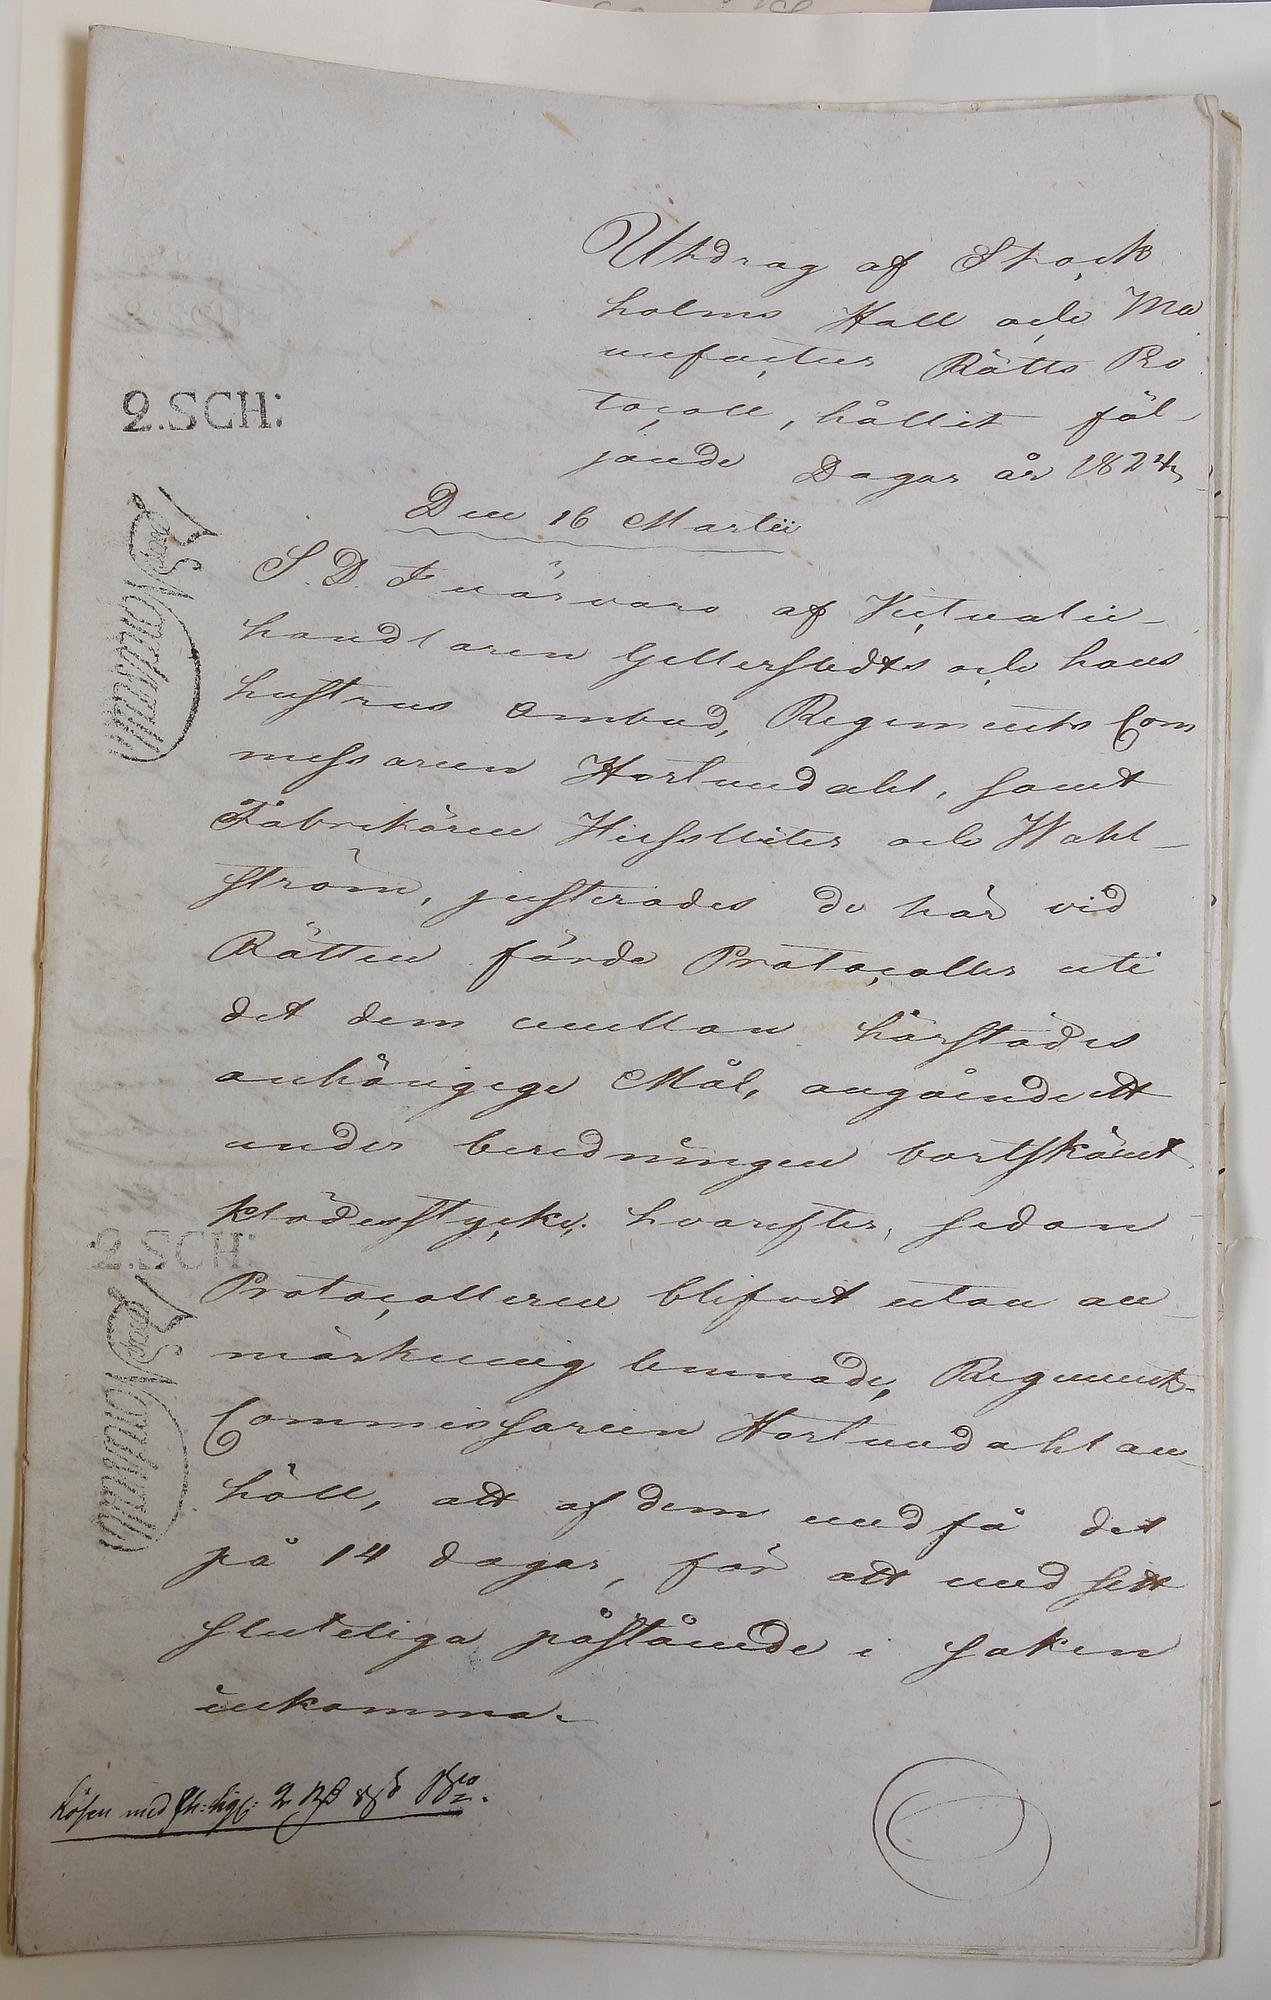 Utdrag af Stock
holms Hall och Ma
nufactur Rätts Pro
tocoll, hållit föl-
jande Dagar år 1824,
Den 16 Martii
2.SCH:
S. D. I närvaro af Victualie-
handlaren Gellerstedts och hans
hustrus Ombud, Regiments Com
missarien Horlundahl, samt
Fabrikören och Wahl-
ström, justerades de här vid
Rätten förde Protocoller uti
det dem mellan härstädes
anhängige Mål, angående ett
under beredningen bortskämt
klädesstycke; hvarefter, sedan
2.SCH:
Protocolleren blifvit utan an-
märkning lemnade, Regiments
Commissarien Horlundahl an-
höll, att af dem med få det
på 14 dagar, för att med sitt
sluteliga påstående i saken
inkomma.
Lösen med 2